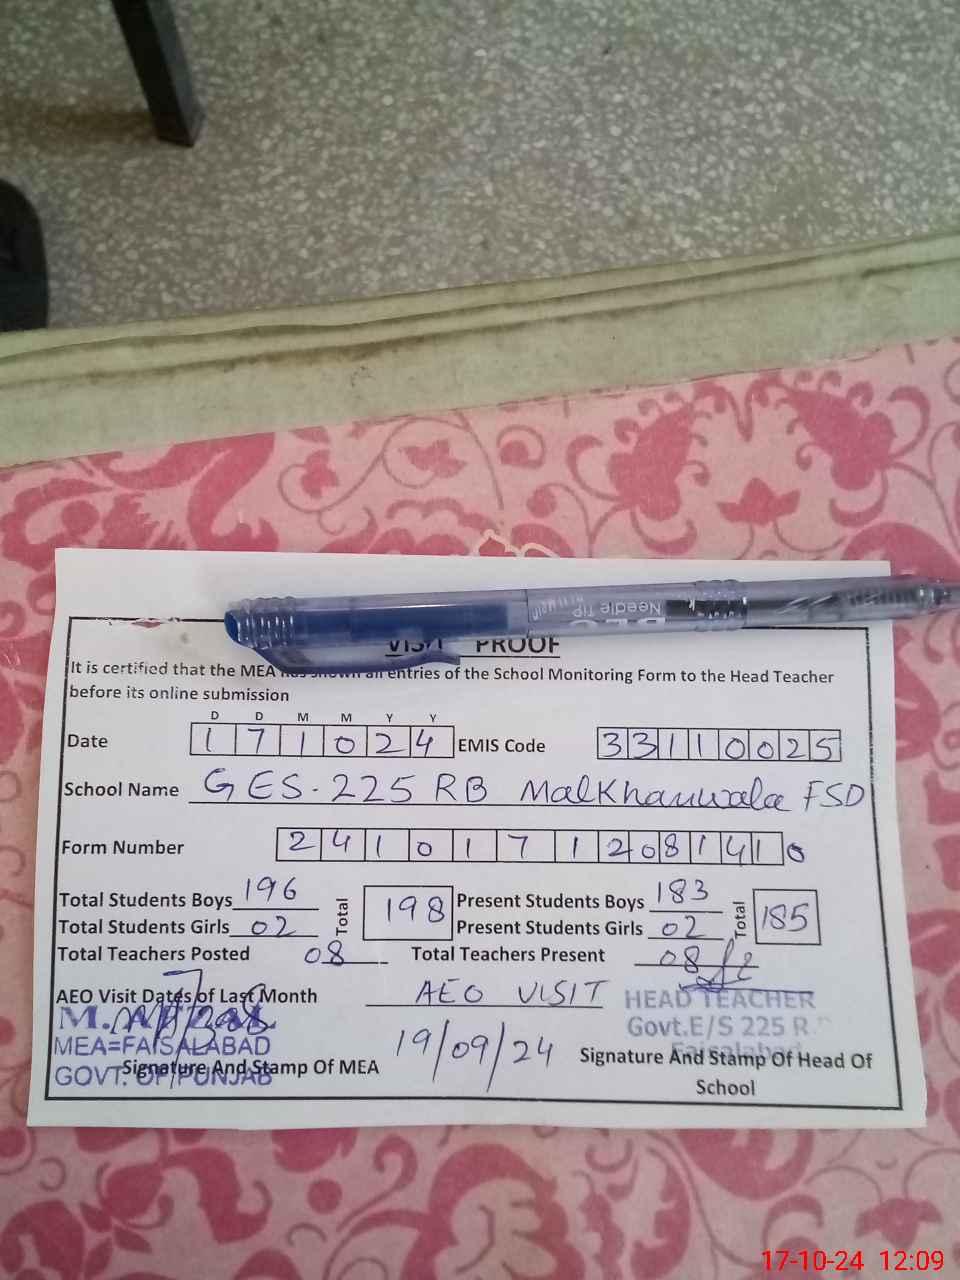 Needle Tip
VISIT PROOF
It is certified that the MEA has shown all entries of the School Monitoring Form to the Head Teacher
before its online submission
D D M M Y Y
Date 1 7 1 0 2 4 EMIS Code 3 3 1 1 0 0 2 5
School Name GES-225 RB Malkhanwala FSD
Form Number 2 4 1 0 1 7 1 2 0 8 1 4 1 0
Total Students Boys 196 Total 198 Present Students Boys 183 Total 185
Total Students Girls 02 Present Students Girls 02
Total Teachers Posted 08 Total Teachers Present 08
AEO Visit Dates of Last Month AEO VISIT
19/09/24
MEA=FAISALABAD
GOVT. OF PUNJAB
Signature And Stamp Of MEA
HEAD TEACHER
Govt.E/S 225 R.B
Faisalabad
Signature And Stamp Of Head Of
School
17-10-24 12:09